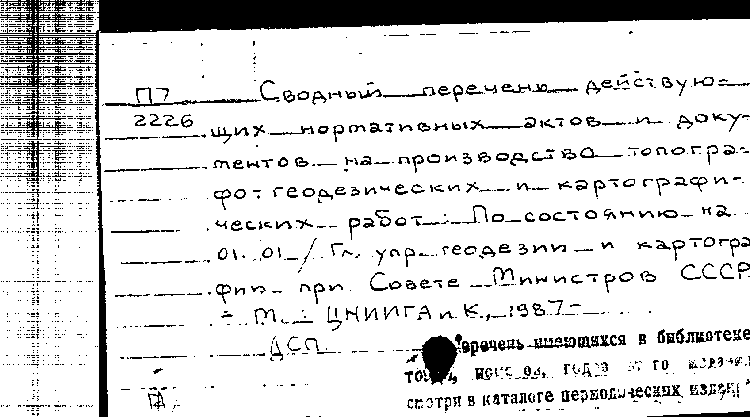 П7 Сводный перечень действую=
2226 щих нормативных актов и доку-
ментов на производство топогра-
фо-геодезических и картографи-
ческих работ: По состоянию на
01.01/ Гл. упр. геодезии и картогра
фии при Совете Министров СССР
= М.: ЦНИИГАиК, 1987-
ДСП
перечень имеющихся в библиотеке
томов, годов
смотри в каталоге периодических издан